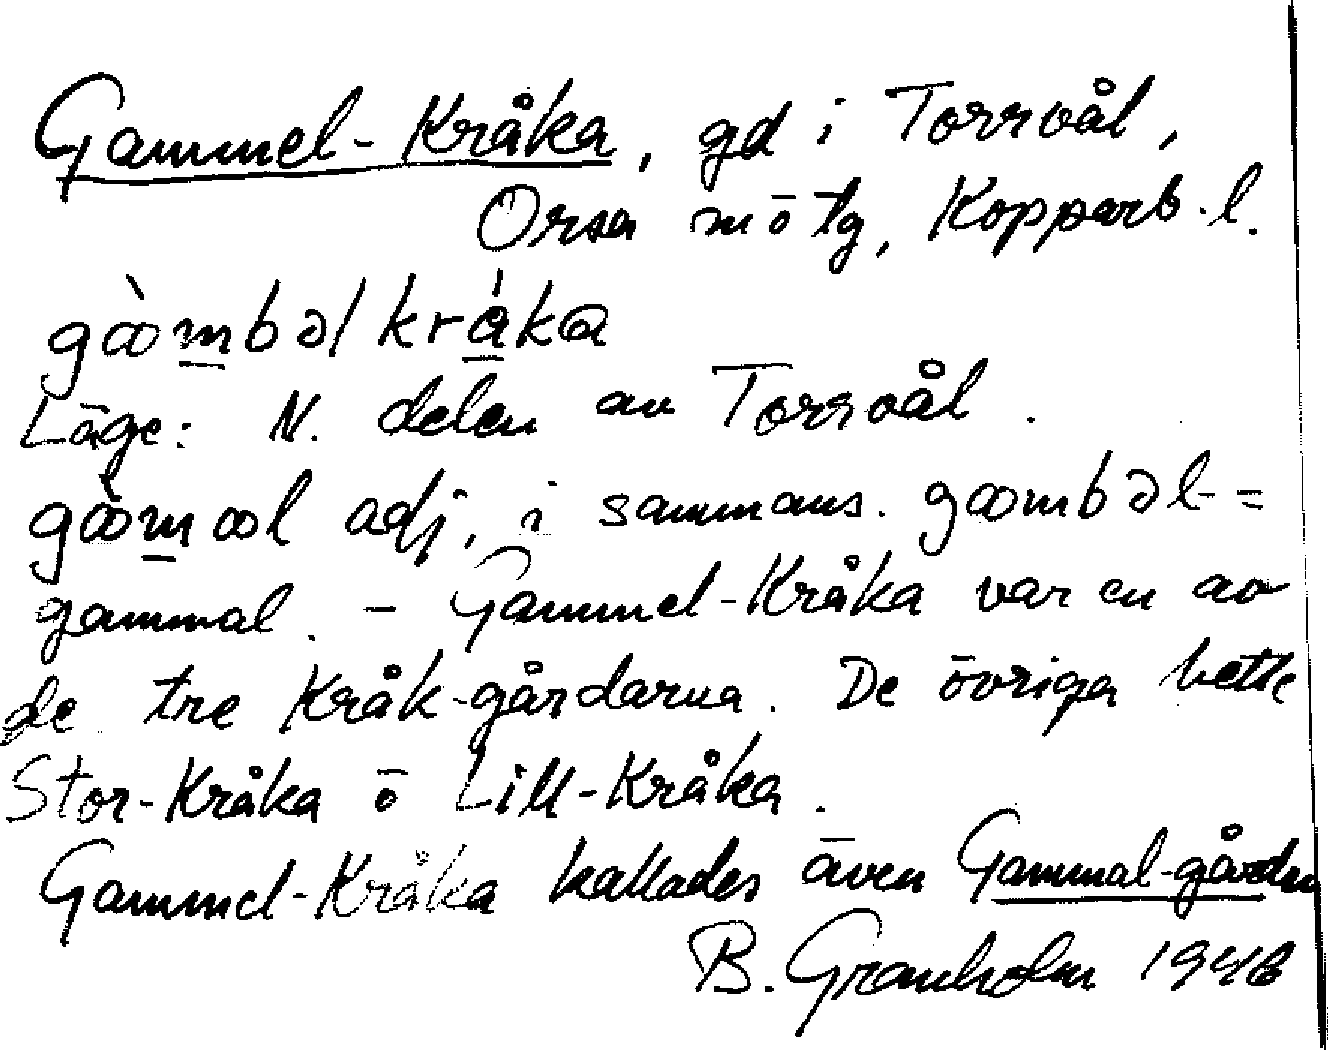 Gammel-Kråka, gd i Torrvål,
Orsa m ō tg, Kopparb. l.
gòombəl kràka
Läge: N. delen av Torrvål.
gòomol adj, i sammans. goombəl- =
gammal. - Gammel-Kråka var en av
de tre Kråk-gårdarna. De övriga hette
Stor-Kråka ō Lill-Kråka.
Gammel-Kråka kallades även Gammal-gården
B. Granholm 1946